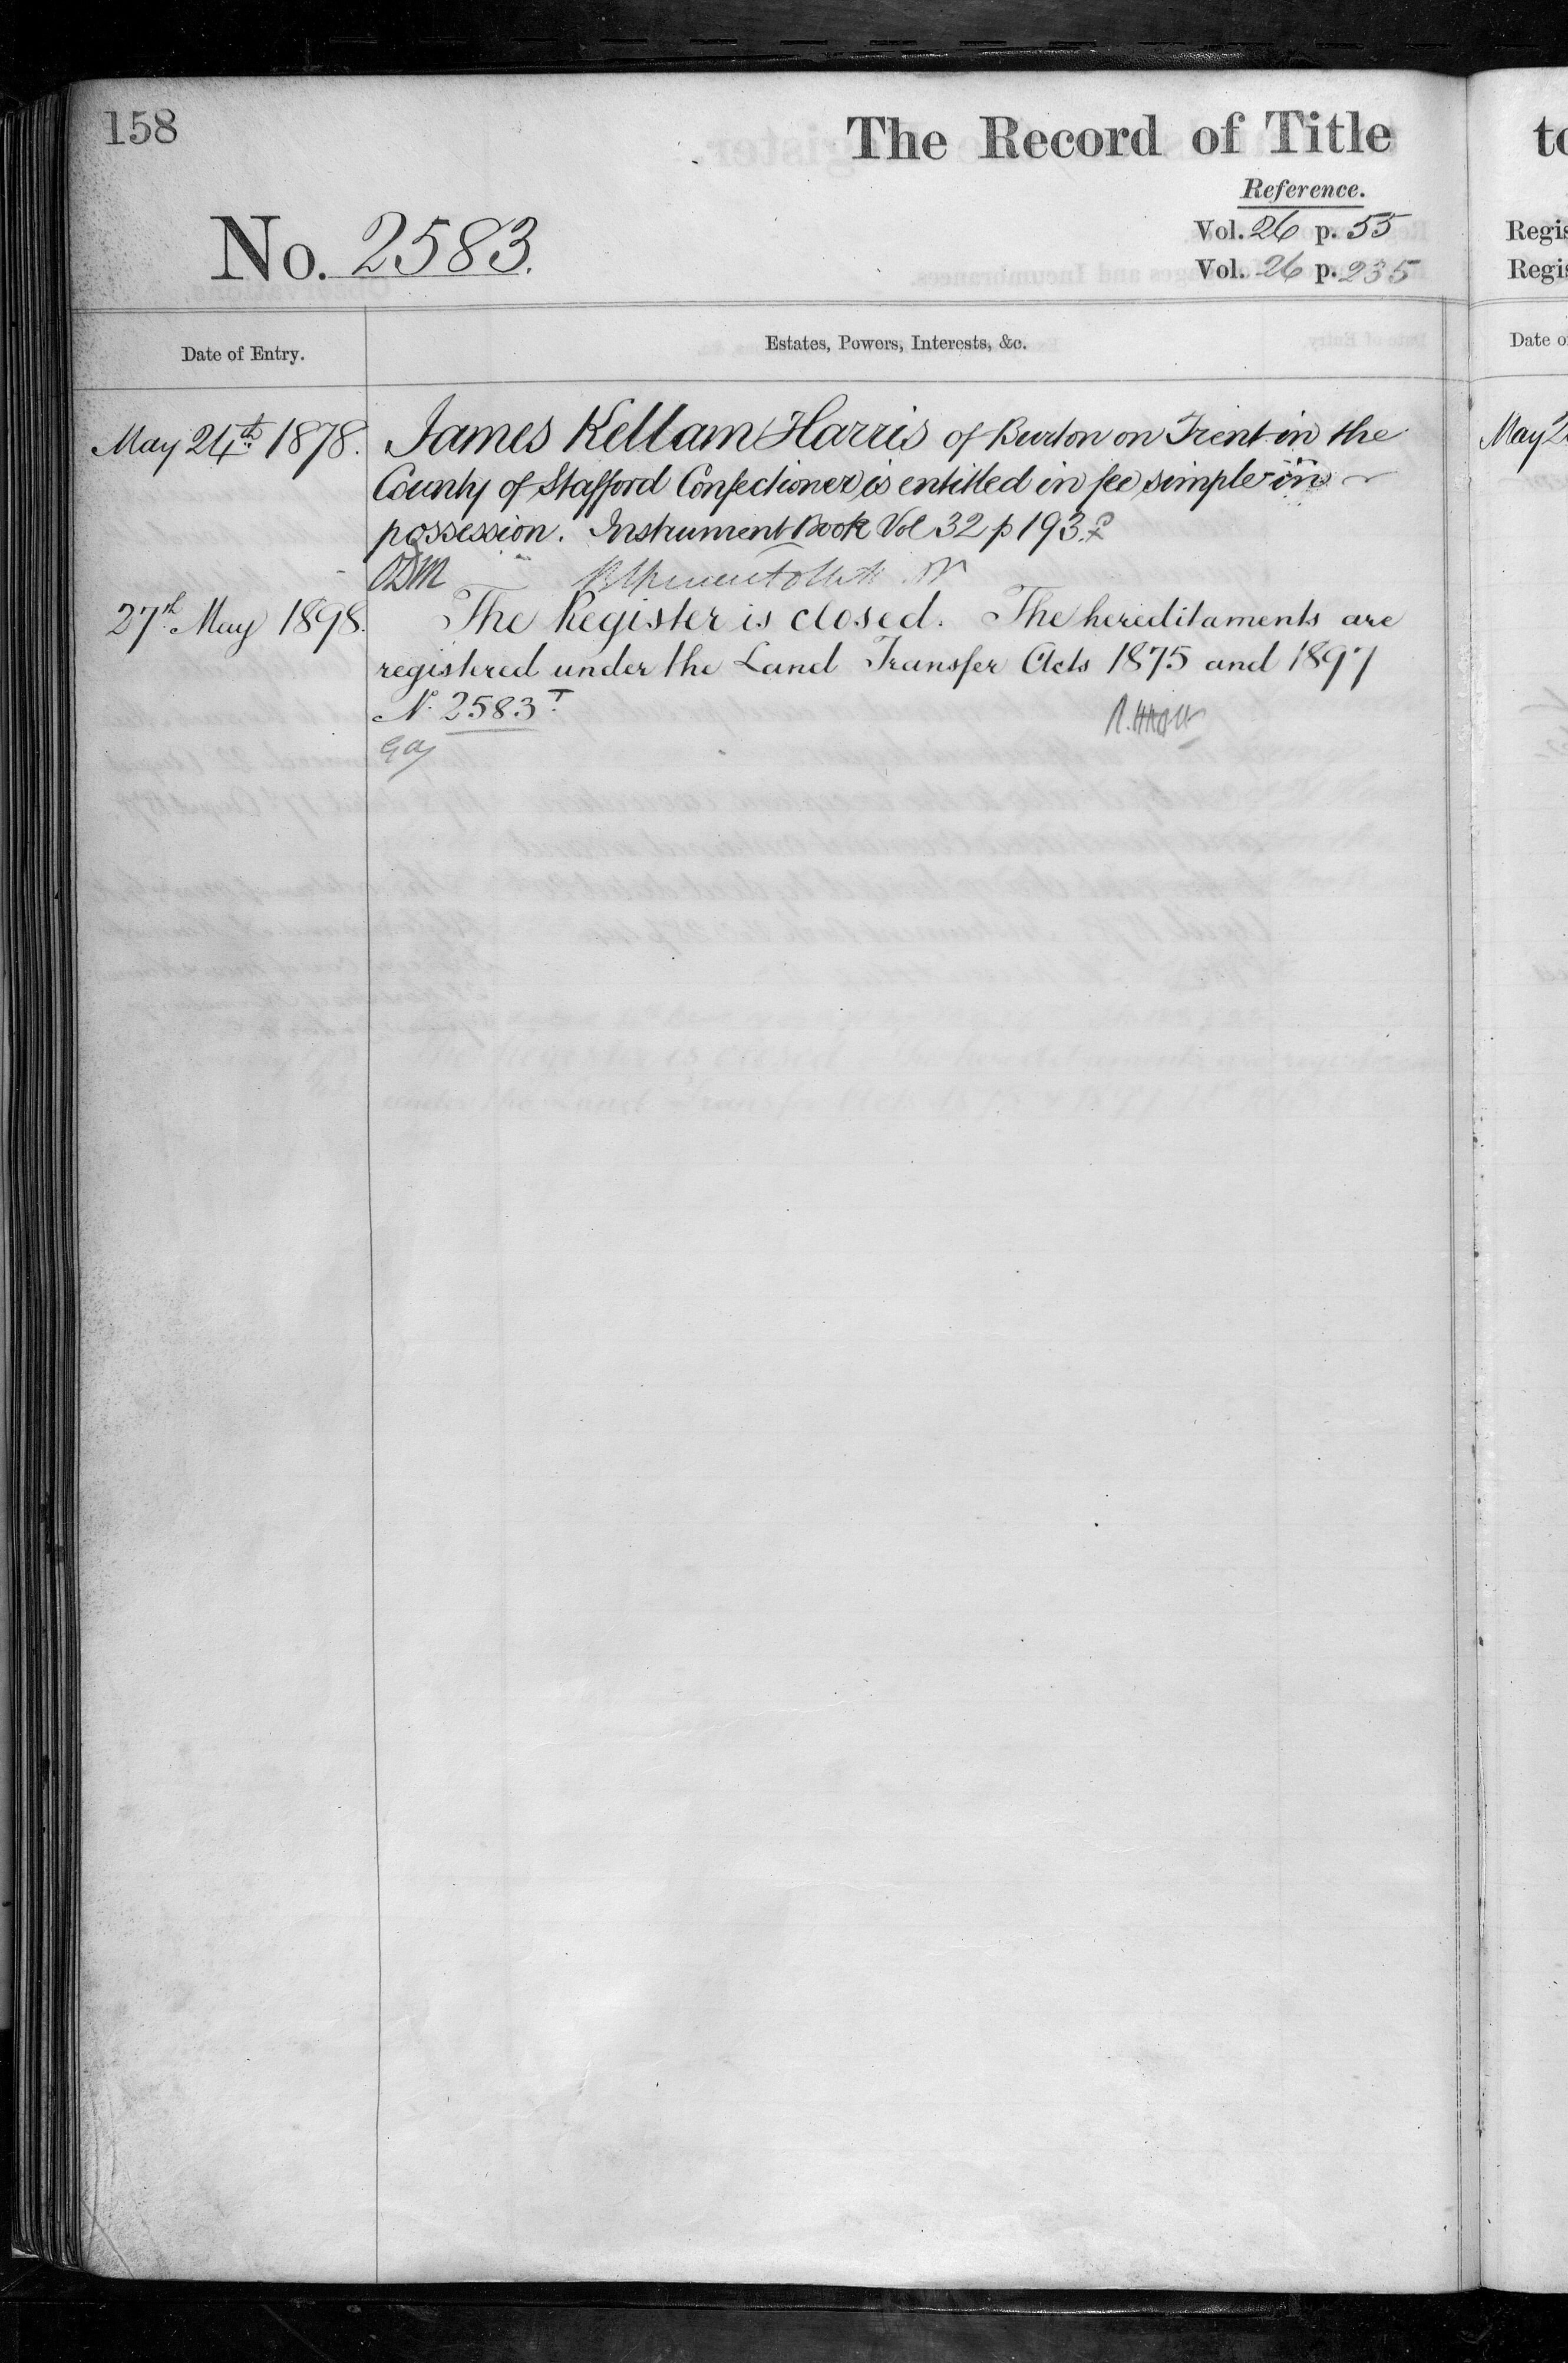 158
The Record of Title
Reference.
No. 2583.
Vol. 26 p. 55
Vol. 26 p. 235
Date of Entry.
Estates, Powers, Interests, &c.
May 24th 1878.
James Kellam Harris of Burton on Trent in the
County of Stafford Confectioner is entitled in fee simple in
possession. Instrument Book Vol 32 p 193.
27th May 1898.
The Register is closed. The hereditaments are
registered under the Land Transfer Acts 1875 and 1897
No. 2583 T.
to
Regis
Regis
Date o
May 2